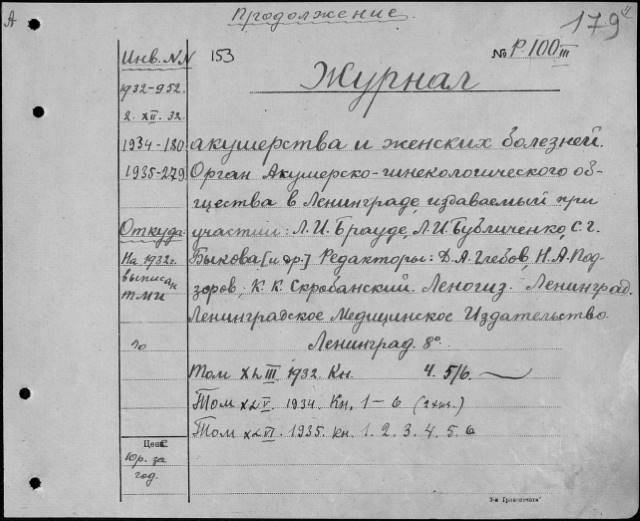 А
Продолжение.
179
Инв. NN 153
№ Р. 100 III
Журнал
1932-952.
2. XII. 32.
1934-180
акушерства и женских болезней.
1935-279
Орган Акушерско-гинекологического об-
щества в Ленинграде, издаваемый при
Откуда:
участии: Л. И. Брауде, Л. И. Бубличенко, С. Г.
На 1932 г.
Быкова [и др.] Редакторы: Д. А. Глебов, Н. А. Под-
выписан
зоров, К. К. Скробанский. Леногиз. Ленинград.
ТМИ
Ленинградское Медицинское Издательство
Ленинград. 8°.
Том XLIII. 1932. Кн. 4. 5/6.
Том XLV. 1934. Кн. 1-6 (2 экз.)
Том XLVI. 1935. Кн. 1. 2. 3. 4. 5. 6
Цена
10р. за
год.